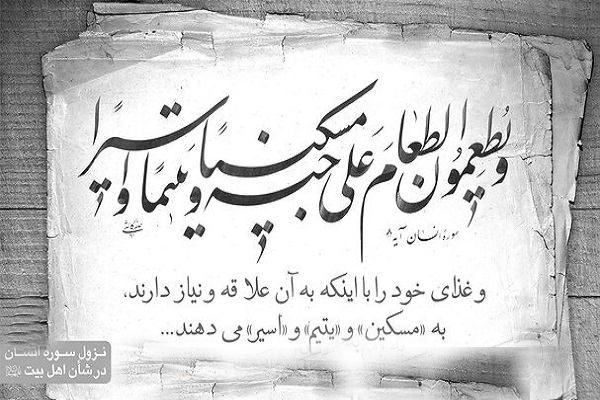 وَيُطعِمُونَ الطَعامَ عَلى حُبِّهِ مِسكينًا وَيَتيمًا وَأَسيرًا
سورهٔ انسان آیه ۸
و غذای خود را با اینکه به آن علاقه و نیاز دارند،
به «مسکین» و «یتیم» و «اسیر» می دهند...
نزول سوره انسان
در شأن اهل بیت